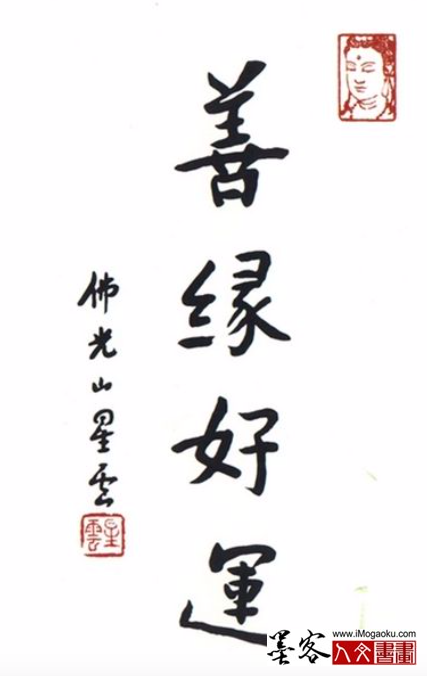 善緣好運
佛光山星雲
星雲
墨客
www.iMogaoku.com
人文書畫